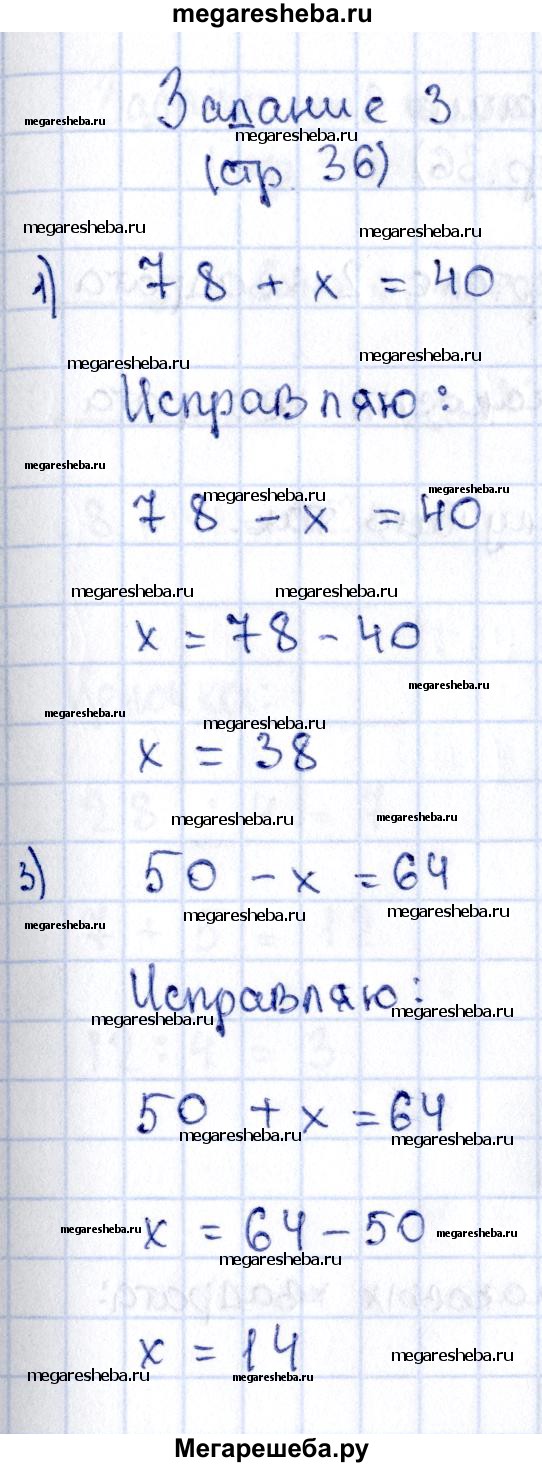 megaresheba.ru
Задание 3
megaresheba.ru
megaresheba.ru
(стр. 36)
megaresheba.ru
megaresheba.ru
1) 78 + x = 40
megaresheba.ru
megaresheba.ru
Исправляю:
megaresheba.ru
megaresheba.ru
megaresheba.ru
78 - x = 40
megaresheba.ru
megaresheba.ru
x = 78 - 40
megaresheba.ru
megaresheba.ru
megaresheba.ru
x = 38
megaresheba.ru
megaresheba.ru
3) 50 - x = 64
megaresheba.ru
megaresheba.ru
megaresheba.ru
Исправляю:
megaresheba.ru
megaresheba.ru
50 + x = 64
megaresheba.ru
megaresheba.ru
x = 64 - 50
megaresheba.ru
megaresheba.ru
megaresheba.ru
x = 14
megaresheba.ru
megaresheba.ru
megaresheba.ru
Мегарешеба.ру